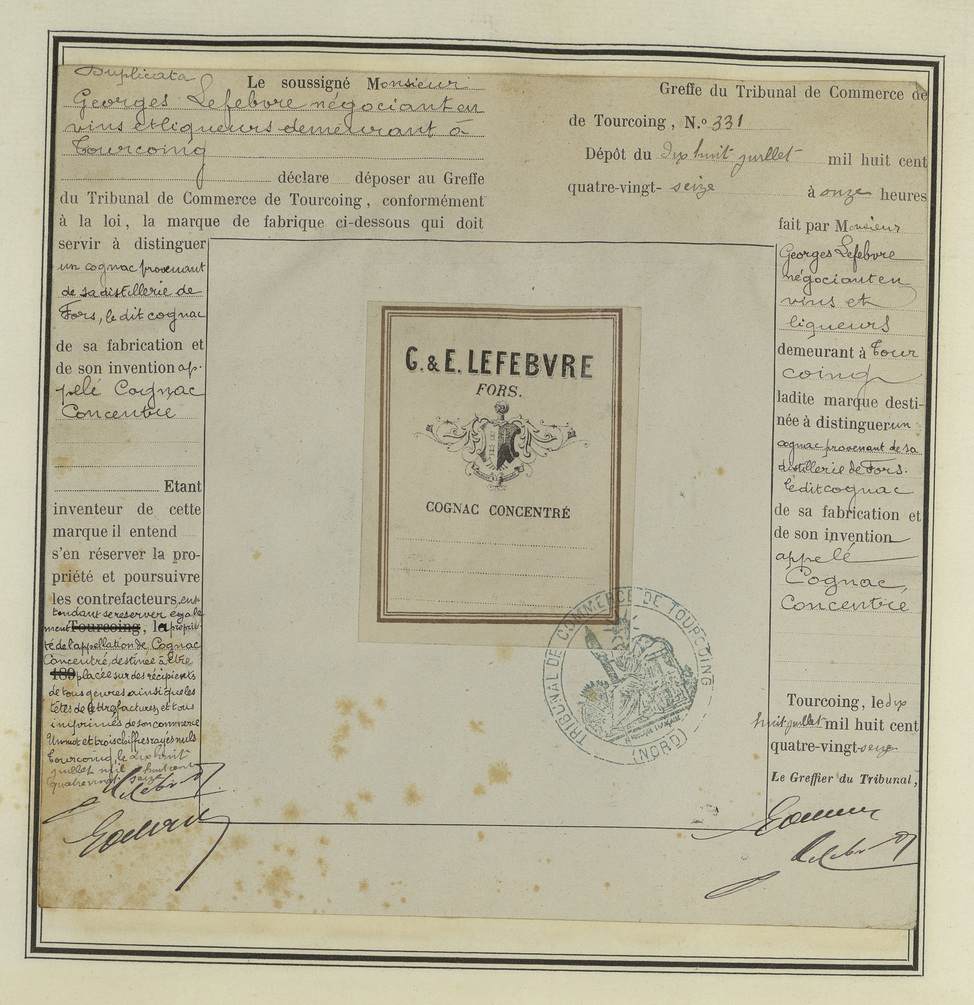 Duplicata
Le soussigné Monsieur
Georges Lefebvre négociant en
vins et liqueurs demeurant à
Tourcoing
déclare déposer au Greffe
du Tribunal de Commerce de Tourcoing, conformément
à la loi, la marque de fabrique ci-dessous qui doit
servir à distinguer
un cognac provenant
de sa distillerie de
Fors, le dit cognac
de sa fabrication et
de son invention ap-
pelé Cognac
Concentré
Etant
inventeur de cette
marque il entend
s'en réserver la pro-
priété et poursuivre
les contrefacteurs, en-
tendant se réserver égale
ment Tourcoing, la proprié-
té de l'appellation de Cognac
Concentré, destinée à être
189 placée sur des récipients
de tous genres ainsi que les
têtes de lettres factures et tous
imprimés de son commerce
Un mot et trois chiffres rayés nuls
Tourcoing, le dix huit
juillet mil huit cent
quatre vingt seize
Greffe du Tribunal de Commerce de
de Tourcoing, N.° 331
Dépôt du dix huit juillet mil huit cent
quatre-vingt- seize à onze heures
fait par Monsieur
Georges Lefebvre
négociant en
vins et
liqueurs
demeurant à Tour
coing
ladite marque desti-
née à distinguer un
cognac provenant de sa
distillerie de Fors.
le dit cognac
de sa fabrication et
de son invention
appelé
Cognac
Concentré
Tourcoing, le dix
huit juillet mil huit cent
quatre-vingt-seize
Le Greffier du Tribunal,
G. & E. LEFEBVRE
FORS.
COGNAC CONCENTRÉ
TRIBUNAL DE COMMERCE DE TOURCOING
(NORD)